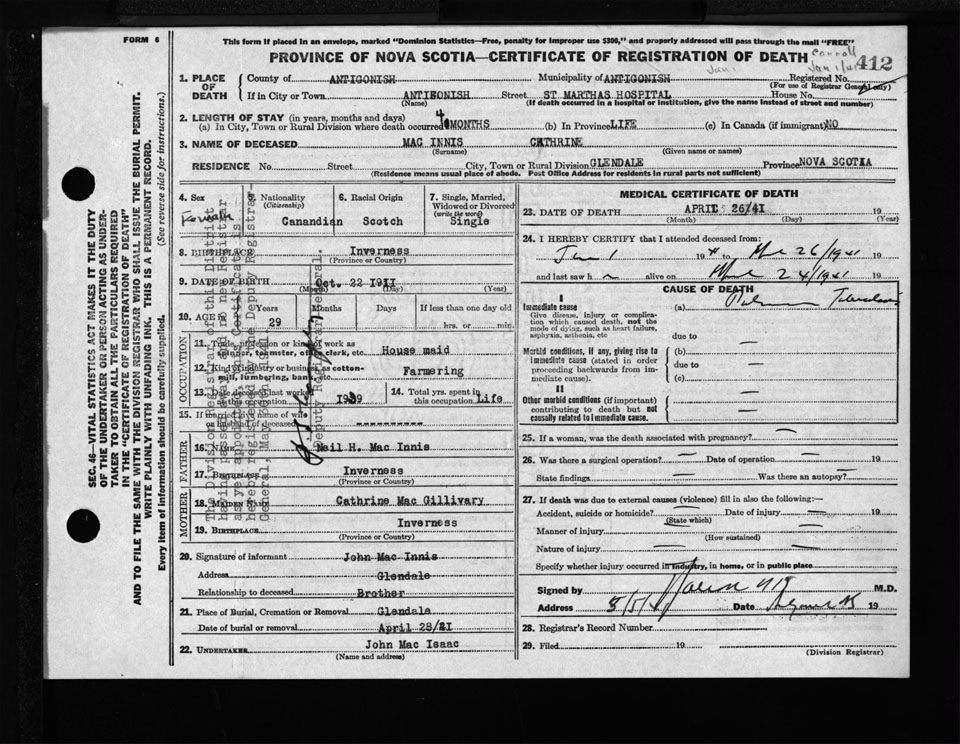 FORM 6
This form if placed in an envelope, marked "Dominion Statistics—Free, penalty for improper use $300," and properly addressed will pass through the mail "FREE"
PROVINCE OF NOVA SCOTIA—CERTIFICATE OF REGISTRATION OF DEATH
412
SEC. 46—VITAL STATISTICS ACT MAKES IT THE DUTY
OF THE UNDERTAKER OR PERSON ACTING AS UNDER-
TAKER TO OBTAIN ALL THE PARTICULARS REQUIRED
IN THE "CERTIFICATE OF REGISTRATION OF DEATH"
AND TO FILE THE SAME WITH THE DIVISION REGISTRAR WHO SHALL ISSUE THE BURIAL PERMIT.
WRITE PLAINLY WITH UNFADING INK. THIS IS A PERMANENT RECORD.
Every item of information should be carefully supplied. (See reverse side for instructions.)
1. PLACE OF DEATH
County of ANTIGONISH Municipality of ANTIGONISH Registered No.
(For use of Registrar General only)
If in City or Town ANTIGONISH Street ST MARTHAS HOSPITAL House No.
(Name) (If death occurred in a hospital or institution, give the name instead of street and number)
2. LENGTH OF STAY (in years, months and days)
(a) In City, Town or Rural Division where death occurred 4 MONTHS (b) In Province LIFE (c) In Canada (if immigrant) NO
3. NAME OF DECEASED MAC INNIS CATHRINE
(Surname) (Given name or names)
RESIDENCE No. Street City, Town or Rural Division GLENDALE Province NOVA SCOTIA
(Residence means usual place of abode. Post Office Address for residents in rural parts not sufficient)
4. Sex Female
Nationality (Citizenship) Canandian
6. Racial Origin Scotch
7. Single, Married, Widowed or Divorced (write the word) Single
8. BIRTHPLACE Inverness
(Province or Country)
9. DATE OF BIRTH Oct. 22 1911
(Month) (Day) (Year)
10. AGE Years Months Days If less than one day old
29 hrs. or min.
OCCUPATION
11. Trade, profession or kind of work as
spinner, teamster, office clerk, etc. House maid
12. Kind of industry or business as cotton-
mill, lumbering, bank, etc. Farmering
13. Date deceased last worked
at this occupation 1939
14. Total yrs. spent in
this occupation Life
15. If married give name of wife
or husband of deceased
FATHER
16. Name Neil H. Mac Innis
17. BIRTHPLACE Inverness
(Province or Country)
MOTHER
18. MAIDEN NAME Cathrine Mac Gillivary
19. BIRTHPLACE Inverness
(Province or Country)
20. Signature of informant John Mac Innis
Address Glendale
Relationship to deceased Brother
21. Place of Burial, Cremation or Removal Glendale
Date of burial or removal April 28/41
22. UNDERTAKER John Mac Isaac
(Name and address)
Deputy Registrar General.
MEDICAL CERTIFICATE OF DEATH
23. DATE OF DEATH APRIL 26/41 19
(Month) (Day) (Year)
24. I HEREBY CERTIFY that I attended deceased from:
19 41 to 26/1941
and last saw h alive on 24/1941
CAUSE OF DEATH
I
Immediate cause
Give disease, injury or complica-
tion which caused death, not the
mode of dying, such as heart failure,
asphyxia, asthenia, etc
(a)
due to
Morbid conditions, if any, giving rise to
immediate cause (stated in order
proceeding backwards from im-
mediate cause).
(b)
due to
(c)
II
Other morbid conditions (if important)
contributing to death but not
causally related to immediate cause.
25. If a woman, was the death associated with pregnancy?
26. Was there a surgical operation? Date of operation 19
State findings Was there an autopsy?
27. If death was due to external causes (violence) fill in also the following:—
Accident, suicide or homicide? Date of injury 19
(State which)
Manner of injury
(How sustained)
Nature of injury
Specify whether injury occurred in industry, in home, or in public place
Signed by M.D.
Address Date 19
28. Registrar's Record Number
29. Filed 19
(Division Registrar)